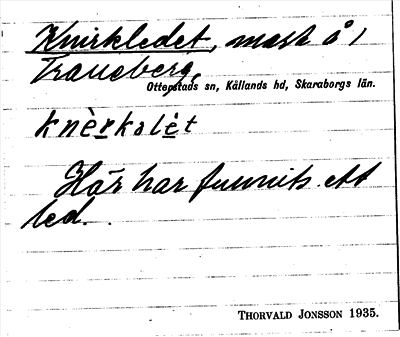 Knirkledet, mark å 1
Traneberg,
Otterstads sn, Kållands hd, Skaraborgs län.
knè̱rkslè̱t
Här har funnits ett
led.
THORVALD JONSSON 1935.